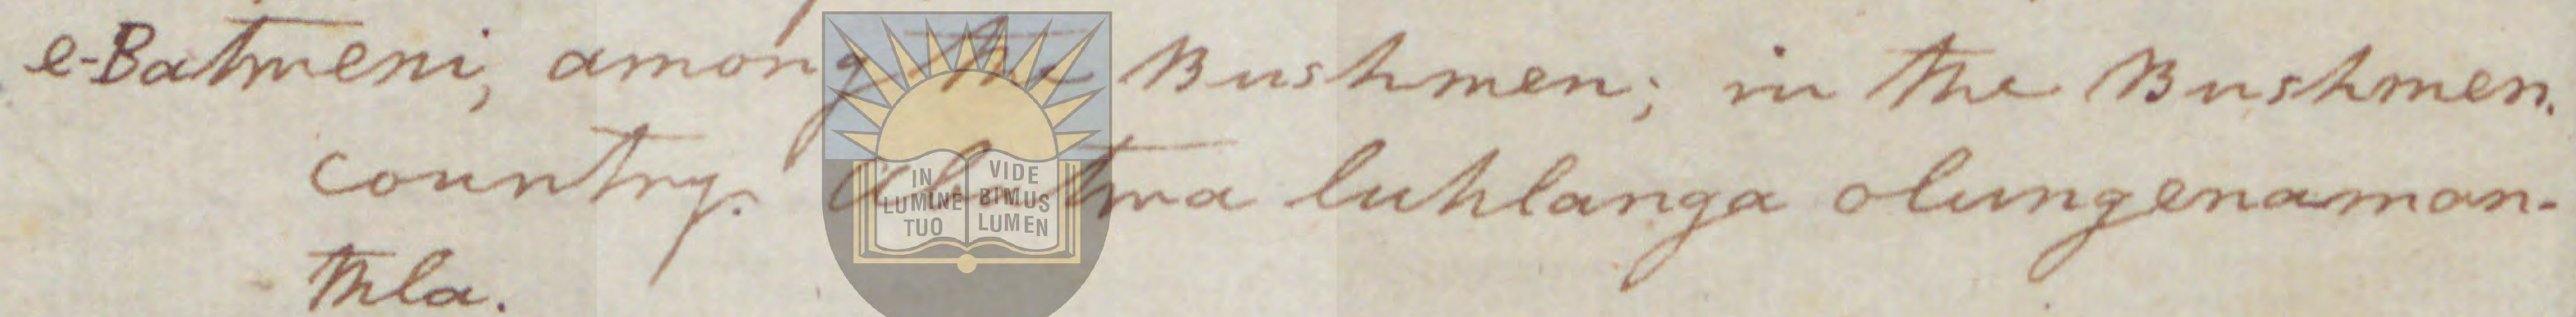 e-Batweni, among the Bushmen; in the Bushmen.
country. luhlanga olungenaman-
thla.
IN
LUMINE
TUO
VIDE
BIMUS
LUMEN